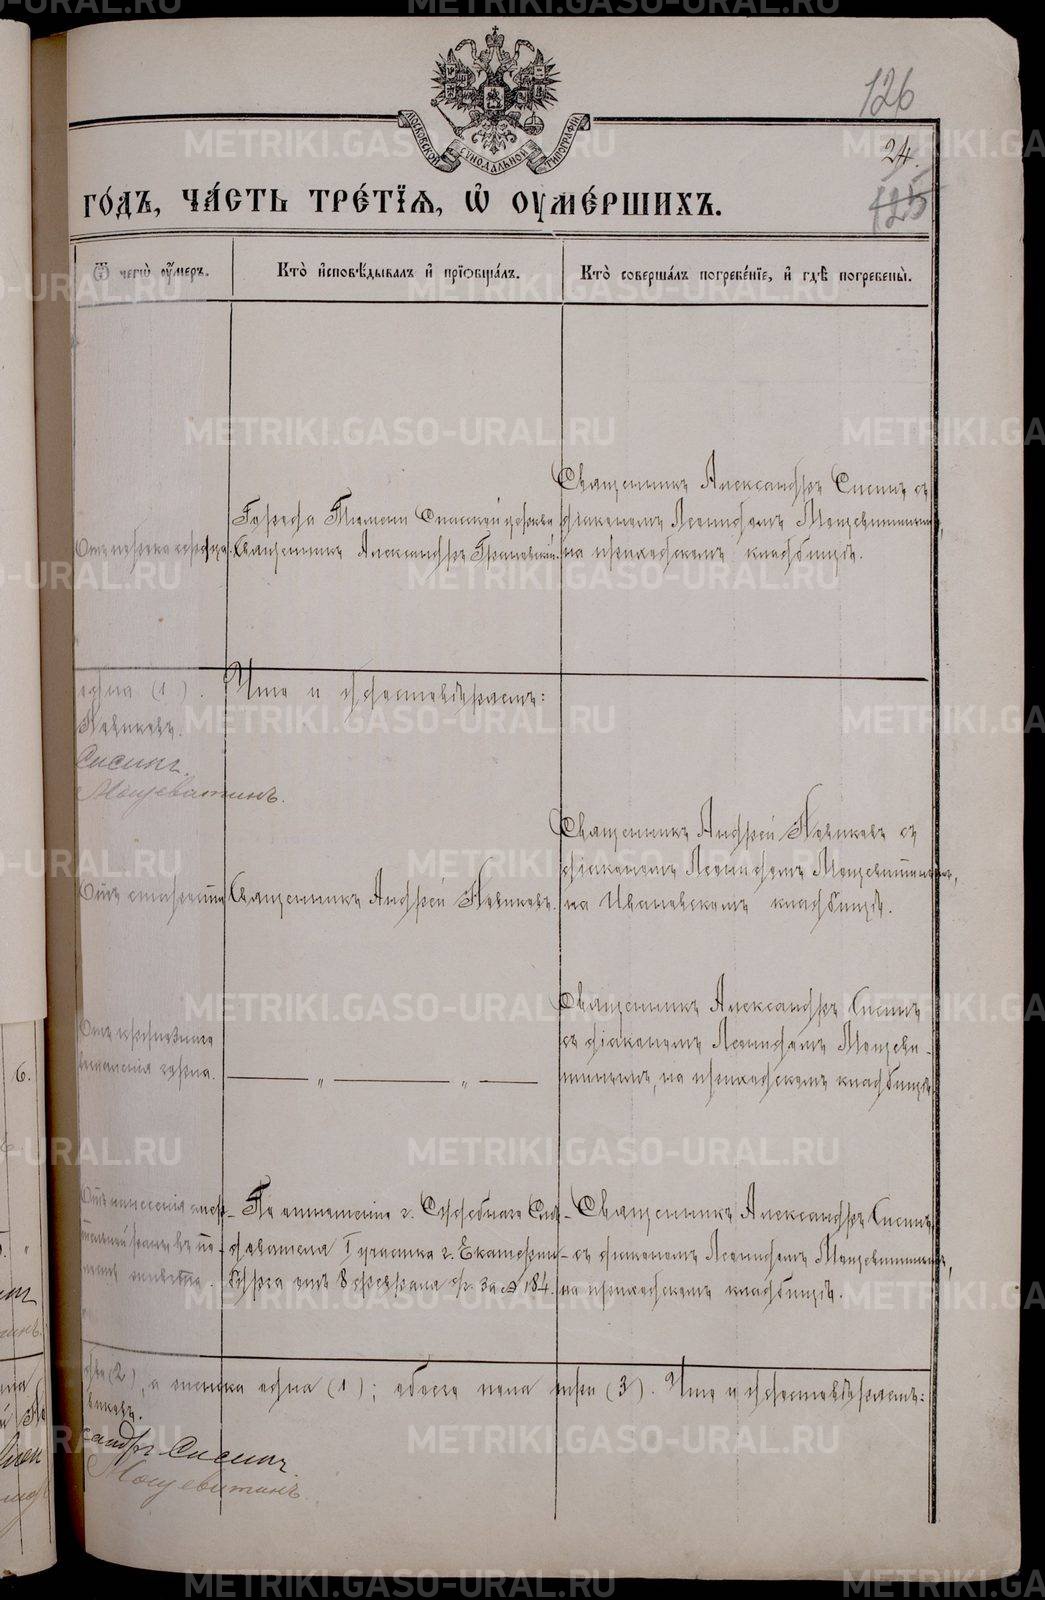 126
24.
125
МОСКОВСКОЙ СѴНОДАЛЬНОЙ ТИПОГРАФІИ
го́дъ, ча́сть тре́тїѧ, ѽ оуме́ршихъ.
Ѿ чегѡ̀ оу҆́меръ.
Кто̀ и҆сповѣ́дывалъ и҆ прїѻбща́лъ.
Кто̀ соверша́лъ погребе́нїе, и҆ гдѣ̀ погребены̀.
Отъ порока сердца.
Города Тюмени Спасской церкви
Священникъ Александръ Грамовскій.
Священникъ Александръ Сисинъ съ
діакономъ Леонидомъ Мощевитинымъ,
на приходскомъ кладбищѣ.
одна (1).
Что и удостовѣряемъ:
Новиковъ.
Сисинъ.
Мощевитинъ.
Отъ старости
Священникъ Андрей Новиковъ.
Священникъ Андрей Новиковъ съ
діакономъ Леонидомъ Мощевитинымъ,
на Ивановскомъ кладбищѣ.
Отъ крупознаго
воспаленія
— „ — „ —
Священникъ Александръ Сисинъ
съ діакономъ Леонидомъ Мощеви-
тинымъ, на приходскомъ кладбищѣ.
Отъ нанесенія смер-
тельной раны въ по-
По отношенію г. Судебнаго Слѣ-
дователя 1 участка г. Екатерин-
бурга отъ 8 февраля с/г. за № 184.
Священникъ Александръ Сисинъ
съ діакономъ Леонидомъ Мощевитинымъ,
на приходскомъ кладбищѣ.
два (2), а женска одна (1); обоего пола три (3). Что и удостовѣряемъ:
виковъ.
сандръ Сисинъ
Мощевитинъ.
METRIKI.GASO-URAL.RU